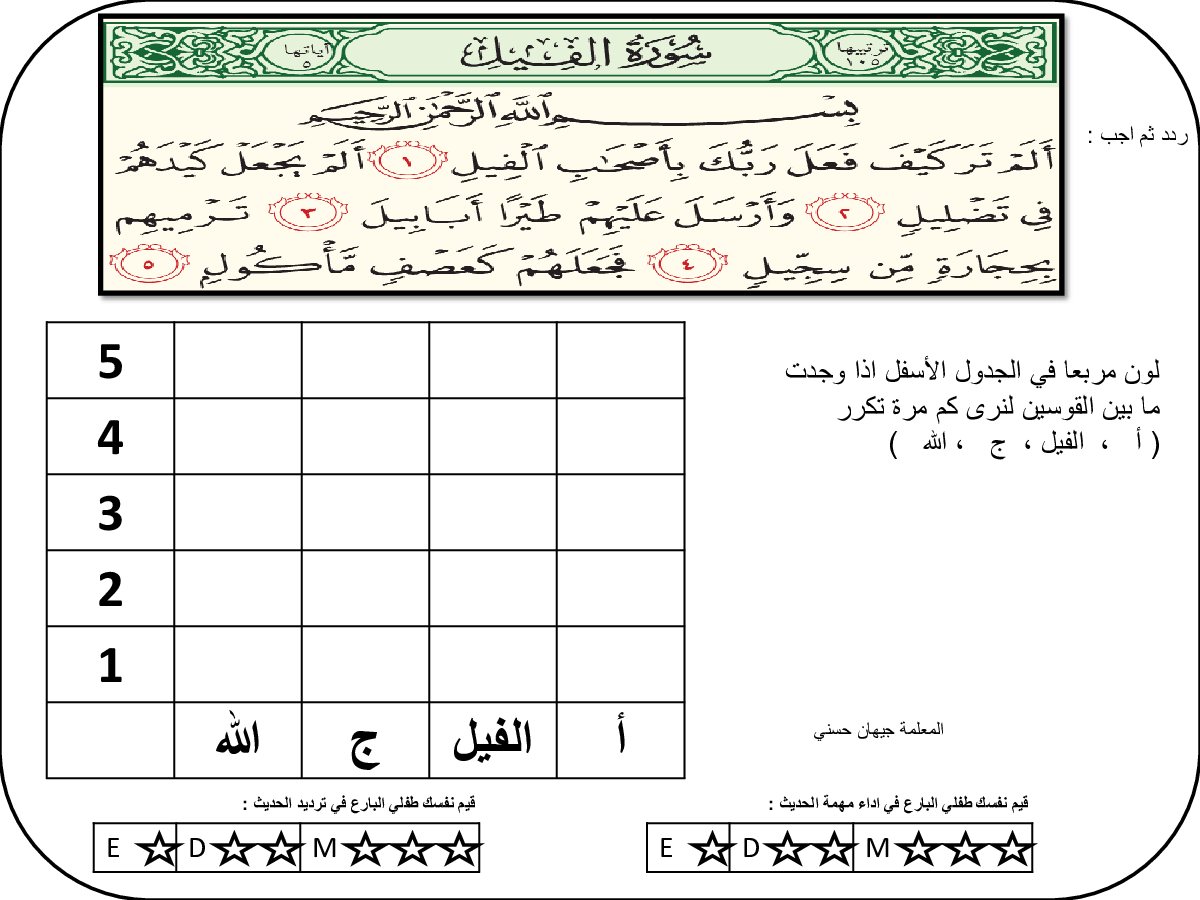 ترتيبها
١٠٥
سُورَةُ الفِيلِ
آياتها
٥
بِسْمِ اللَّهِ الرَّحْمَٰنِ الرَّحِيمِ
أَلَمْ تَرَ كَيْفَ فَعَلَ رَبُّكَ بِأَصْحَابِ الْفِيلِ ١ أَلَمْ يَجْعَلْ كَيْدَهُمْ
فِي تَضْلِيلٍ ٢ وَأَرْسَلَ عَلَيْهِمْ طَيْرًا أَبَابِيلَ ٣ تَرْمِيهِم
بِحِجَارَةٍ مِّن سِجِّيلٍ ٤ فَجَعَلَهُمْ كَعَصْفٍ مَّأْكُولٍ ٥
ردد ثم اجب :
لون مربعا في الجدول الأسفل اذا وجدت
ما بين القوسين لنرى كم مرة تكرر
( أ ، الفيل ، ج ، الله )
5
4
3
2
1
أ الفيل ج الله
المعلمة جيهان حسني
قيم نفسك طفلي البارع في اداء مهمة الحديث :
E D M
قيم نفسك طفلي البارع في ترديد الحديث :
E D M